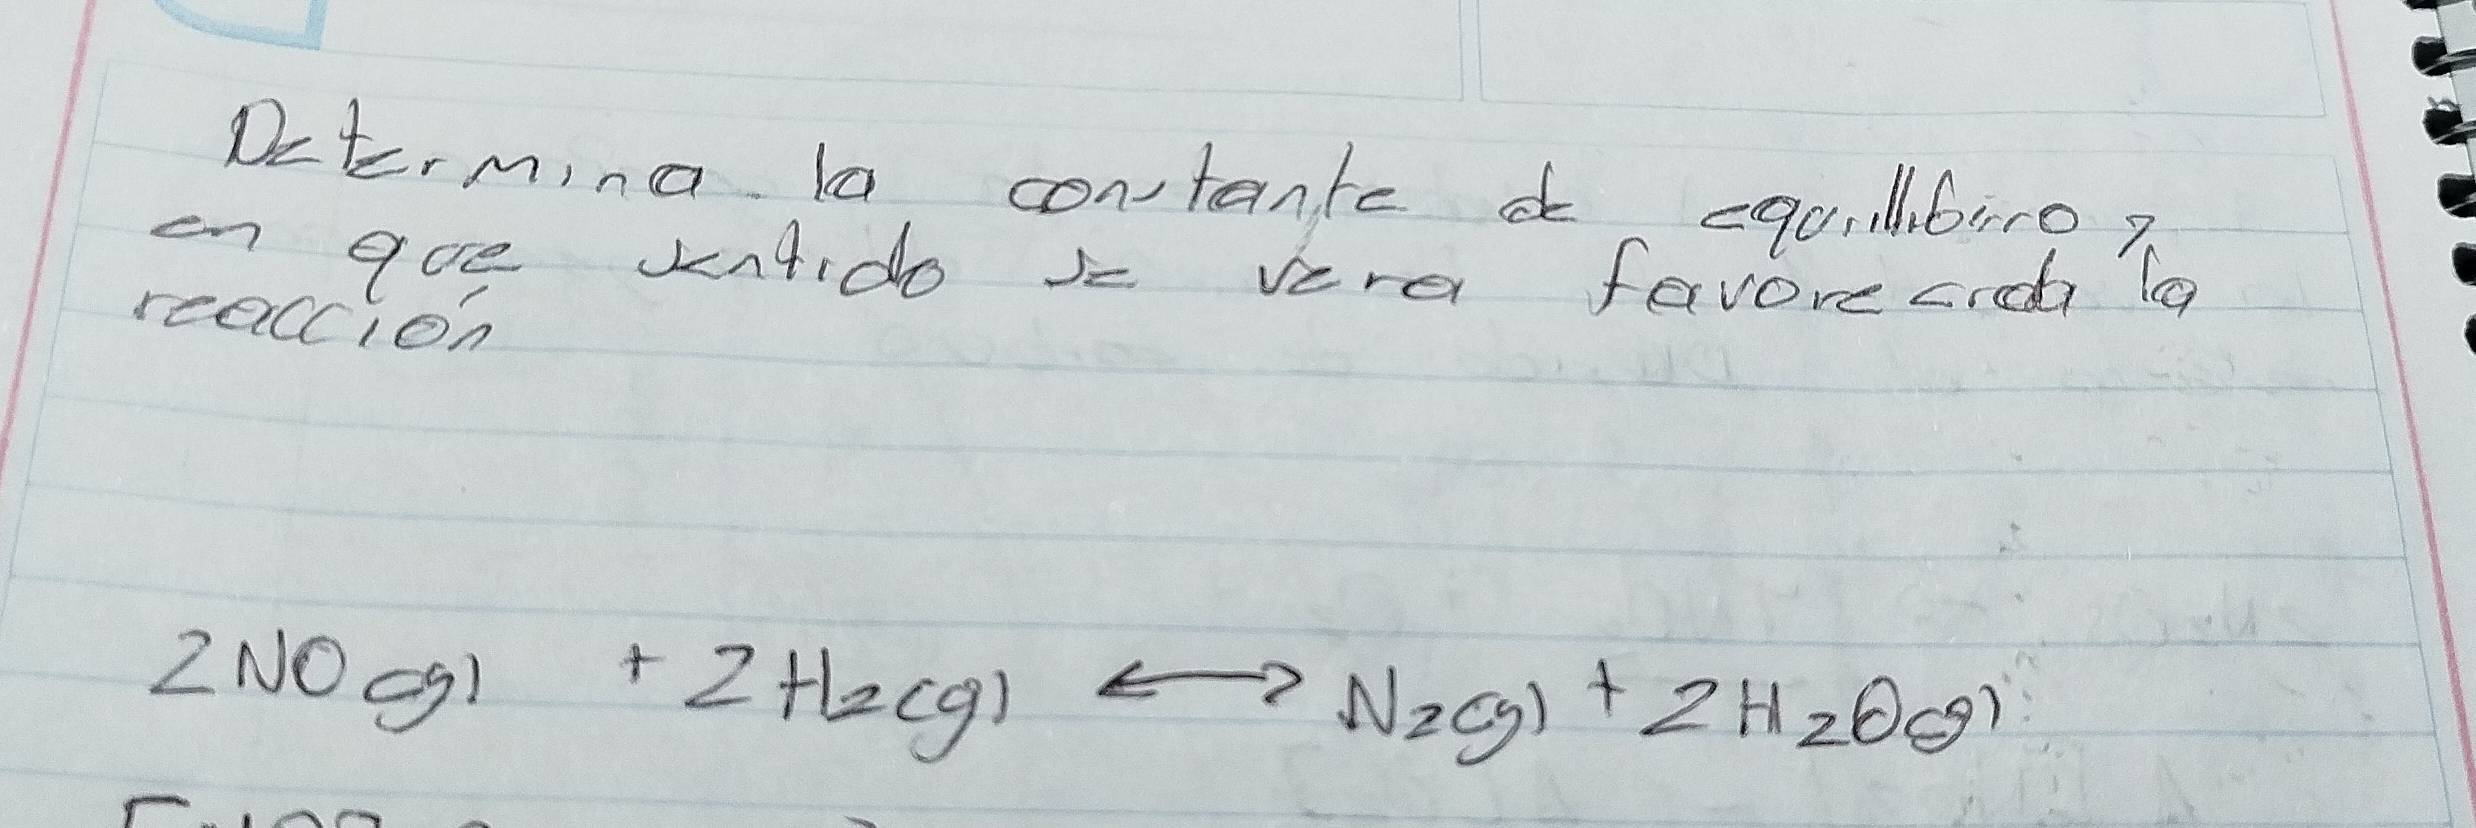 Determina la constante de equillibiro y
en que sentido se vera favorecida la
reacción
2NO(g) + 2H2(g) ⟷ N2(g) + 2H2O(g)